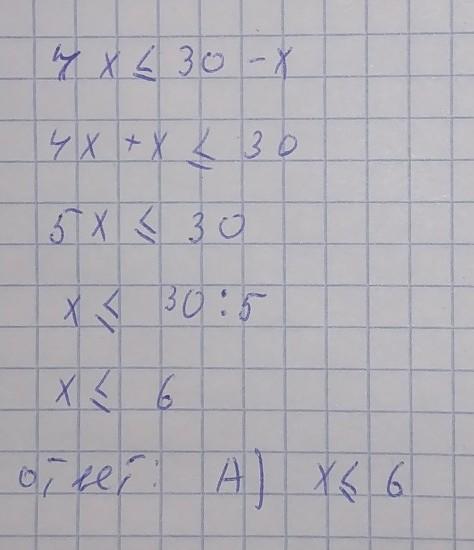 4x ≤ 30 - x
4x + x ≤ 30
5x ≤ 30
x ≤ 30 : 5
x ≤ 6
ответ: А) x ≤ 6